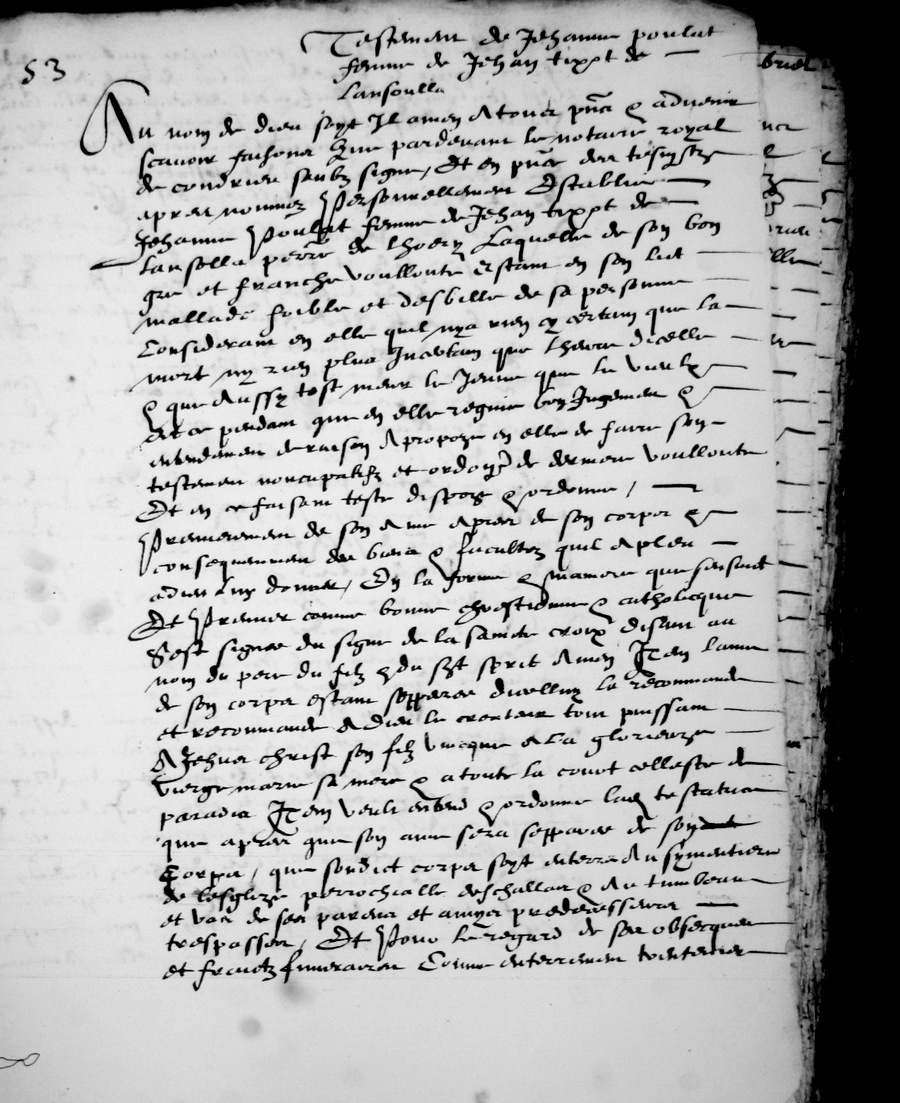 53
Testament de Jehanne poulat
femme de Jehan tixot de
Lansoulla
Au nom de dieu soyt Il amen A tous pñs & advenir
scavoir faisons Que pardevant le notaire royal
de condrieu soubz signe, Et en pñce des tesmz
apres nommez Personnellement Establie
Jehanne Poulat femme de Jehan tixot de
Lansolla perre de Laquelle de son bon
gre et franche voullonte Estant en son lict
mallade foible et desbille de sa personne
Considerant en elle quil nya rien cy certain que la
mort ny rien plus Incertain que lheure dicelle
& que Aussy tost meur le Jeune que le vieulx
Et ce pendant que en elle regnie bon Jugement &
entendement de raison A propoze en elle de faire son
testament noncupatifz et ordonñ de derniere voullonte
Et en ce faisant teste dispoze & ordonne,
Premierement de son Ame Apres de son corps &
consequemment des biens & facultez quil A pleu
a dieu luy donner, En la forme & maniere que sensuit
Et Premier comme bonne chrestienne & catholicque
Sest signee du signe de la saincte croix disant au
nom du pere du filz & du sct sprit Amen Item lame
de son corps estant sepparee dicelluy la recommande
et recommande A Dieu le createur tout puissant
A Jehsus christ son filz unicque A La glorieuze
vierge marie sa mere & a toute la court celleste de
paradis Item veult entend & ordonne lad testatrice
que apres que son ame sera sepparee de son
Corps, que sondict corps soyt enterre Au symentiere
de lesglize perrochialle deschallas & Au tumbeau
et vas de ses parens et amys predecesseurs
trespasses, Et Pour le regard de ses obseques
et fraictz funeraires Comme enterrement